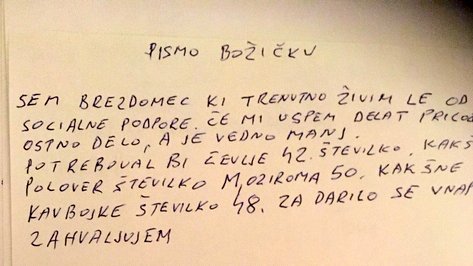 PISMO BOŽIČKU
SEM BREZDOMEC KI TRENUTNO ŽIVIM LE OD
SOCIALNE PODPORE. ČE MI USPEM DELAT PRILOŽ
OSTNO DELO, A JE VEDNO MANJ.
POTREBOVAL BI ČEVLJE 42. ŠTEVILKO, KAKŠ
POLOVER ŠTEVILKO M, OZIROMA 50. KAKŠNE
KAVBOJKE ŠTEVILKO 48. ZA DARILO SE VNAP
ZAHVALJUJEM